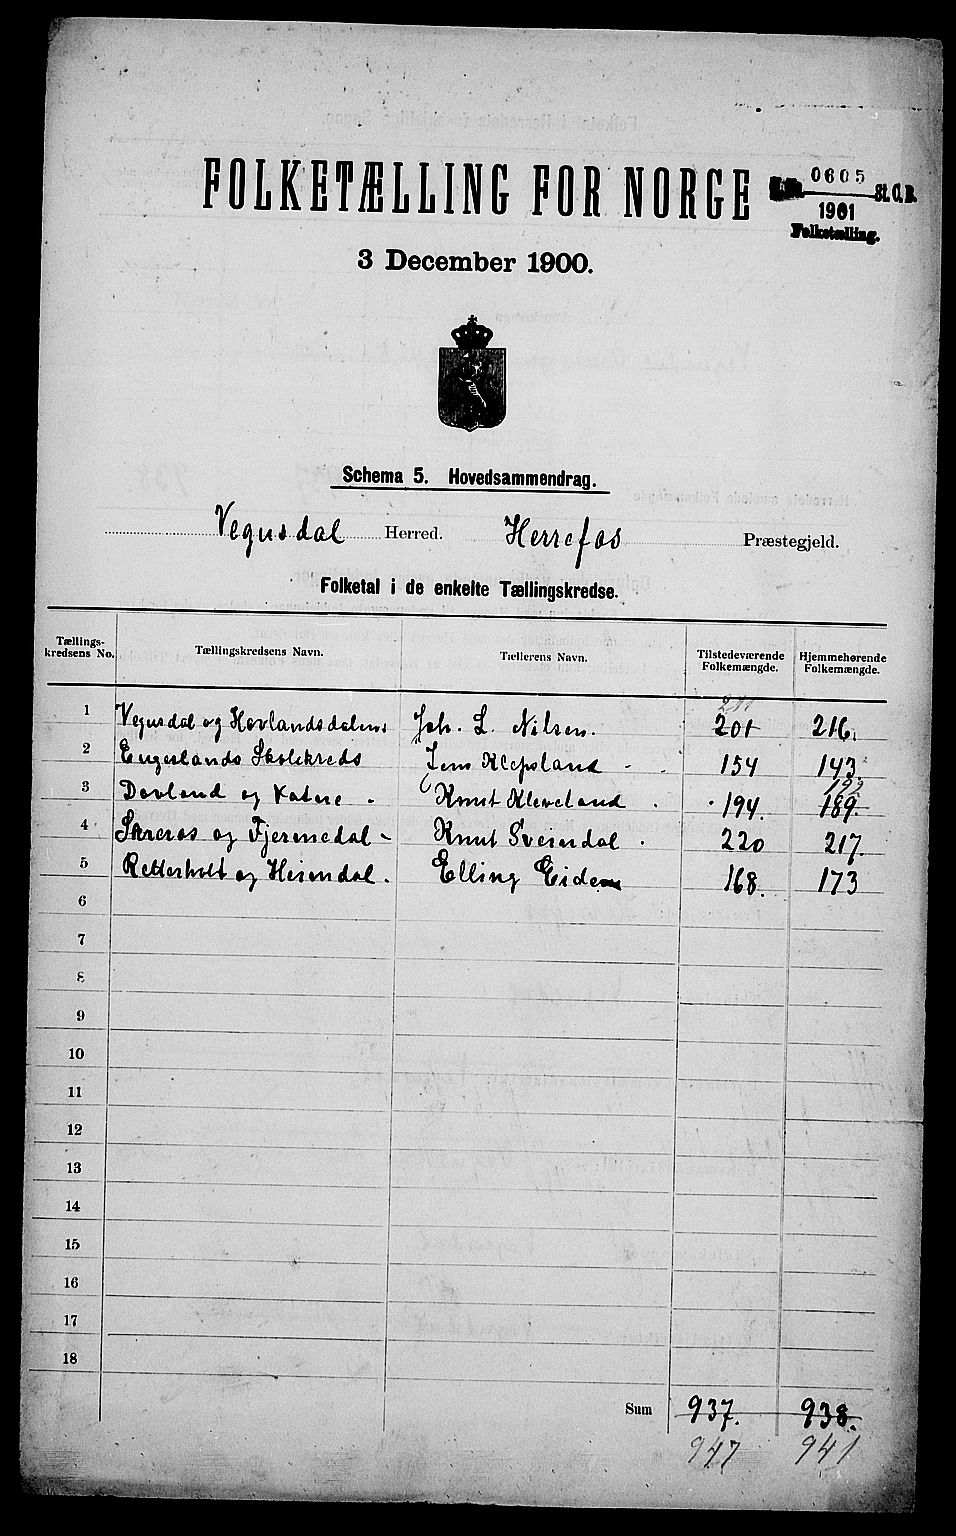 FOLKETÆLLING FOR NORGE
0605 St. C. B.
1901
Folketælling.
3 December 1900.
Schema 5. Hovedsammendrag.
Vegusdal Herred. Herrefos Præstegjeld.
Folketal i de enkelte Tællingskredse.
Tællings-kredsens No. Tællingskredsens Navn. Tællerens Navn. Tilstedeværende Folkemængde. Hjemmehørende Folkemængde.
211
1 Vegusdal og Hovlandsdalens Joh. L. Nilsen. 201 216.
2 Engeslands Skolekreds Jens Klepsland 154 143.
192
3 Dovland og Katere. Knut Kleveland 194. 189.
4 Skreros og Fjermedal Knut Sveindal 220 217.
5 Retterholt og Heimdal. Elling Eide 168. 173
6
7
8
9
10
11
12
13
14
15
16
17
18
Sum 937. 938.
947 941